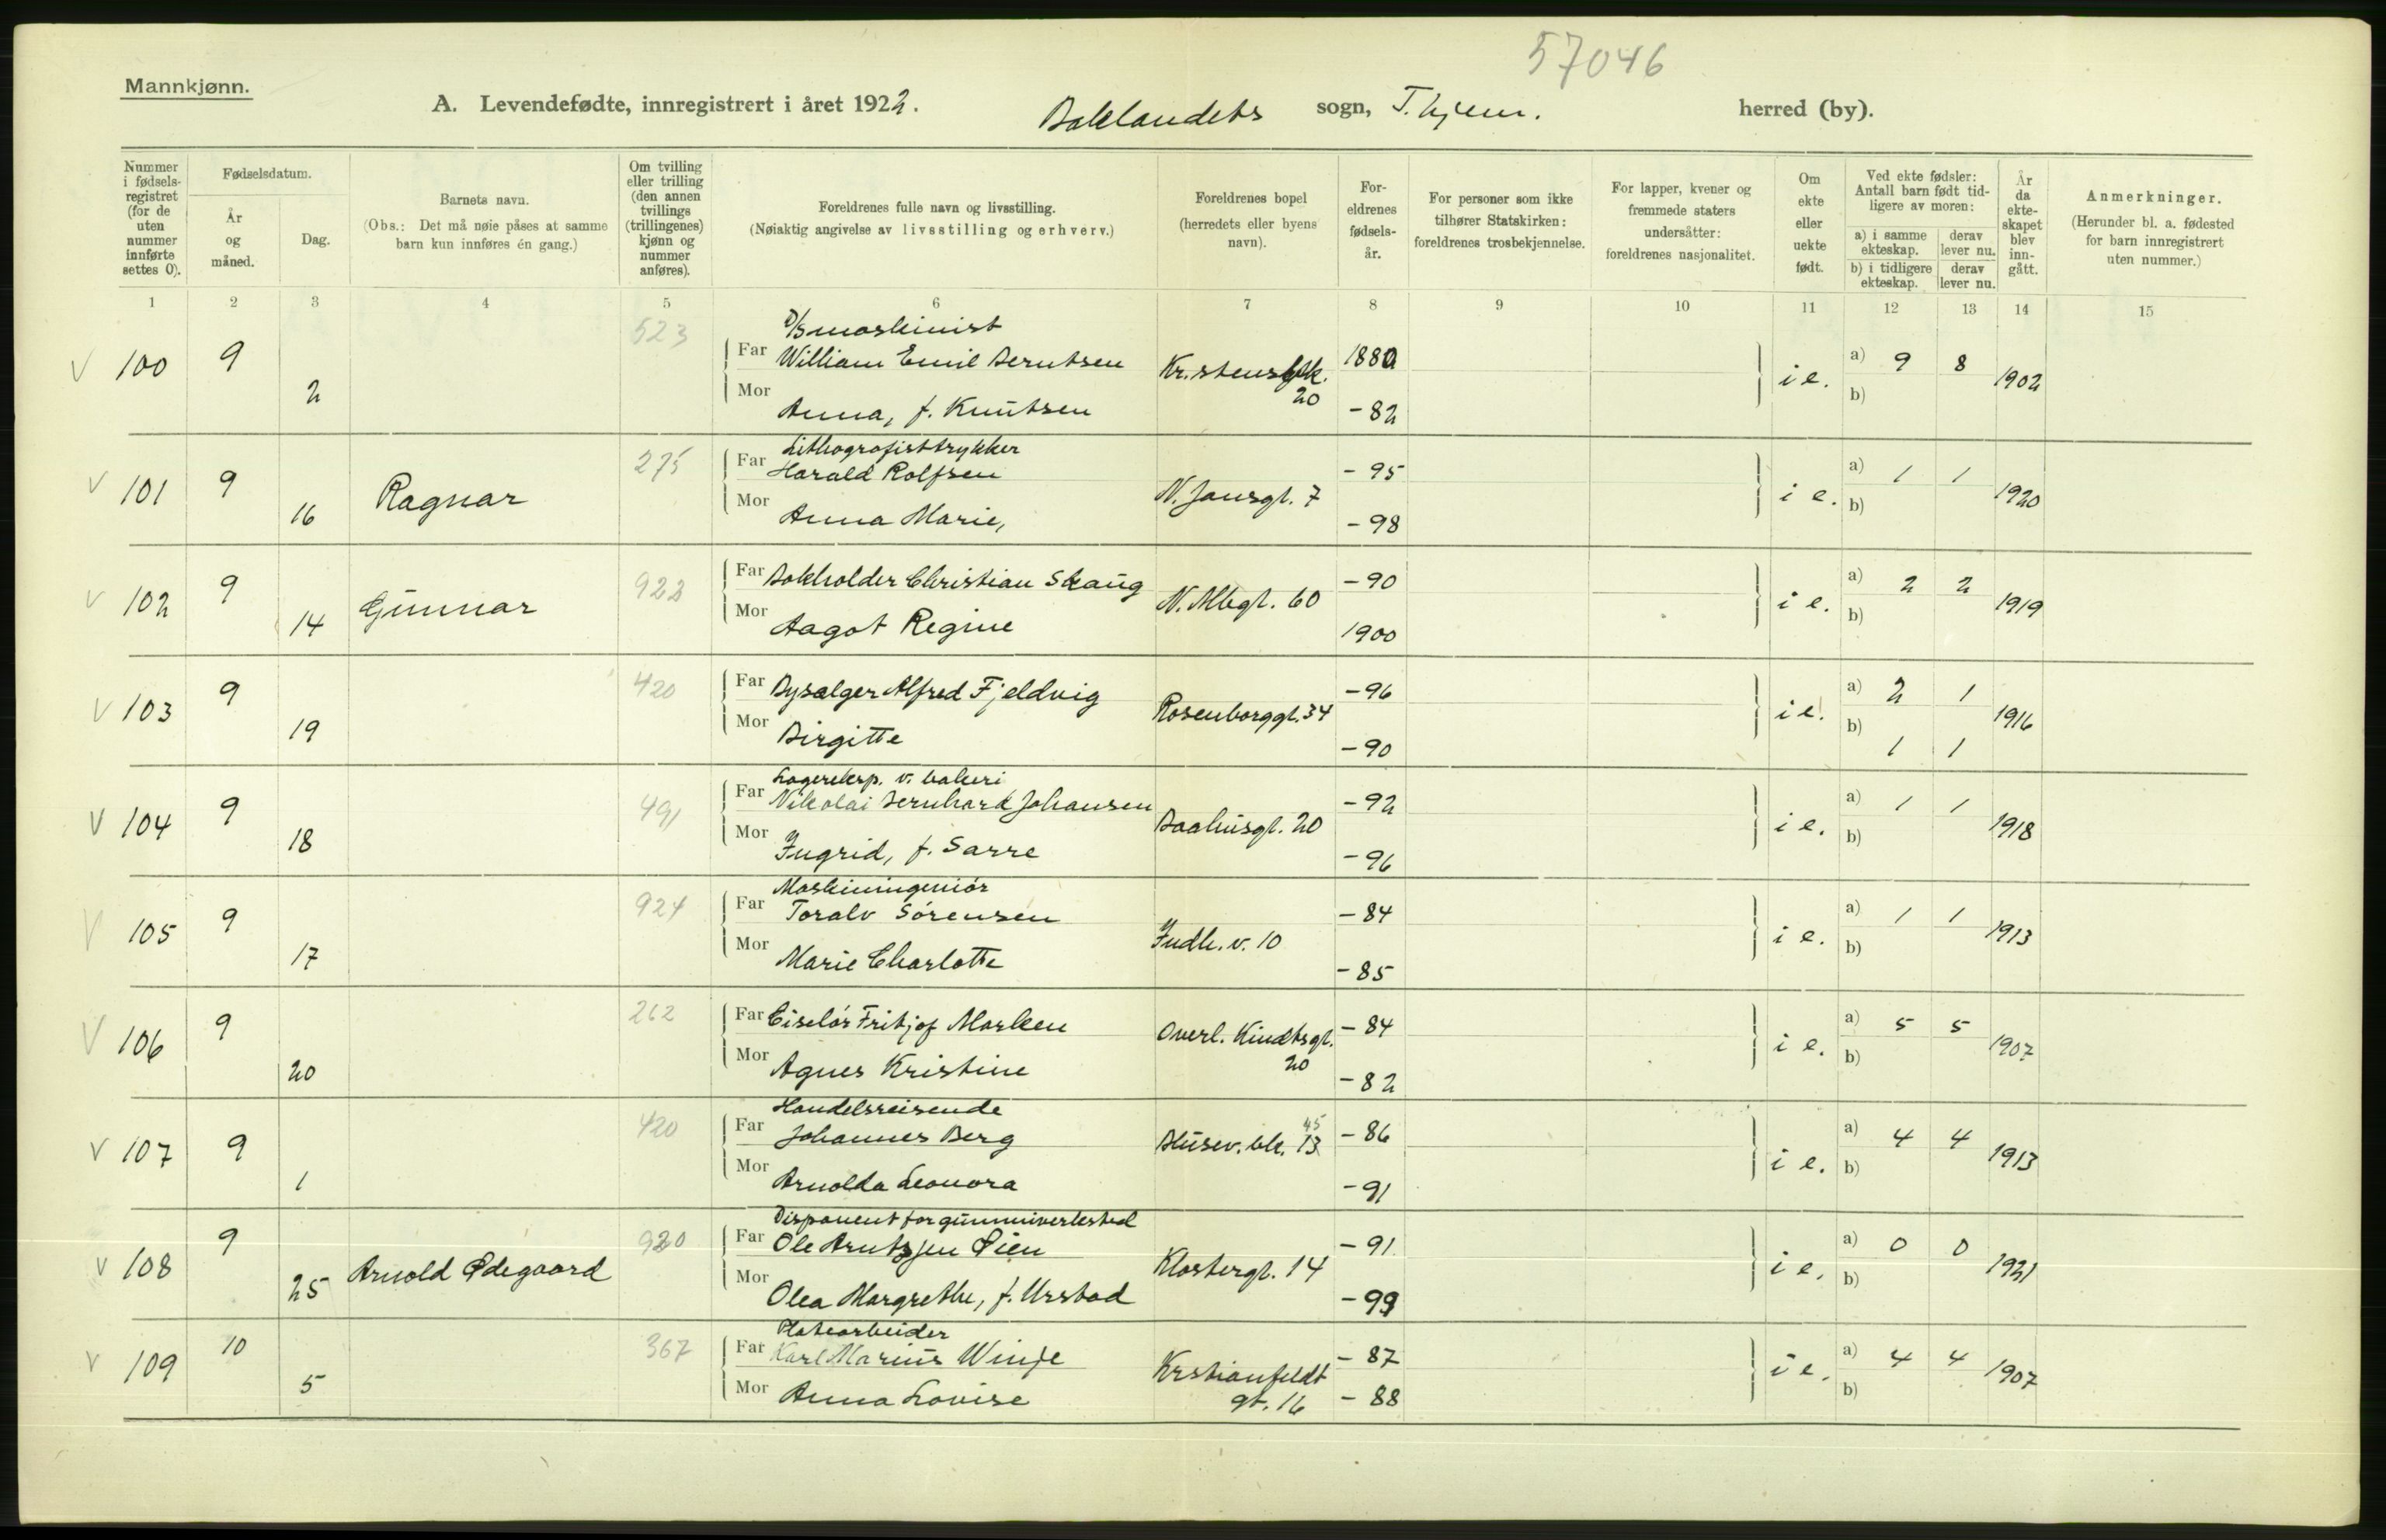 57046
Mannkjønn.
A. Levendefødte, innregistrert i året 1922. Baklandets sogn, T.hjem. herred (by).
Nummer i fødsels-registret (for de uten nummer innførte settes 0).
Fødselsdatum.
År og måned.
Dag.
Barnets navn.
(Obs.: Det må nøie påses at samme barn kun innføres én gang.)
Om tvilling eller trilling (den annen tvillings (trillingenes) kjønn og nummer anføres).
Foreldrenes fulle navn og livsstilling.
(Nøiaktig angivelse av livsstilling og erhverv.)
Foreldrenes bopel (herredets eller byens navn).
For-eldrenes fødsels-år.
For personer som ikke tilhører Statskirken: foreldrenes trosbekjennelse.
For lapper, kvener og fremmede staters undersåtter: foreldrenes nasjonalitet.
Om ekte eller uekte født.
Ved ekte fødsler: Antall barn født tid-ligere av moren:
a) i samme ekteskap. derav lever nu.
b) i tidligere ekteskap. derav lever nu.
År da ekte-skapet blev inn-gått.
Anmerkninger.
(Herunder bl. a. fødested for barn innregistrert uten nummer.)
1 2 3 4 5 6 7 8 9 10 11 12 13 14 15
V 100 9 2 523
D/S maskinist
Far William Emil Berntsen Kr.stensbk. 20 1880
Mor Anna, f. Knutsen -82
i e. a) 9 8 b) 1902
V 101 9 16 Ragnar 275
Lithografisttrykker
Far Harald Rolfsen N. Jansgt. 7 -95
Mor Anna Marie, -98
i e. a) 1 1 b) 1920
V 102 9 14 Gunnar 922
Far Bokholder Christian Skaug N. Allegt. 60 -90
Mor Aagot Regine 1900
i e. a) 2 2 b) 1919
V 103 9 19 420
Far Bysælger Alfred Fjeldvig Rosenborggt. 34 -96
Mor Birgitte -90
i e. a) 2 1 b) 1 1 1916
V 104 9 18 491
Lagereksp. v. bakeri
Far Nikolai Bernhard Johansen Baahusgt. 20 -92
Mor Ingrid, f. Sarre -96
i e. a) 1 1 b) 1918
V 105 9 17 924
Maskiningeniör
Far Toralv Sörensen Indh. v. 10 -84
Mor Marie Charlotte -85
i e. a) 1 1 b) 1913
V 106 9 20 262
Far Ciselör Fritjof Marken Överl. Kindtsgt. 20 -84
Mor Agnes Kristine -82
i e. a) 5 5 b) 1907
V 107 9 1 420
Handelsreisende
Far Johannes Berg Busev. bk. 13 45 -86
Mor Arnolda Leonora -91
i e. a) 4 4 b) 1913
V 108 9 25 Arnold Ødegaard 920
Disponent for gummiverksted
Far Ole Arntzen Øien Klostergt. 14 -91
Mor Olea Margrethe, f. Urstad -99
i e. a) 0 0 b) 1921
V 109 10 5 367
Platearbeider
Far Karl Marius Winje Krstianfeldt gt. 16 -87
Mor Anna Lovise -88
i e. a) 4 4 b) 1907